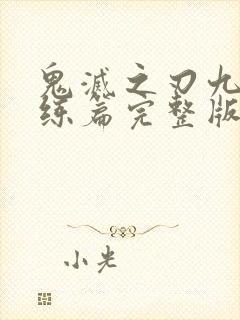 鬼滅之刃九
练篇完整版
小光